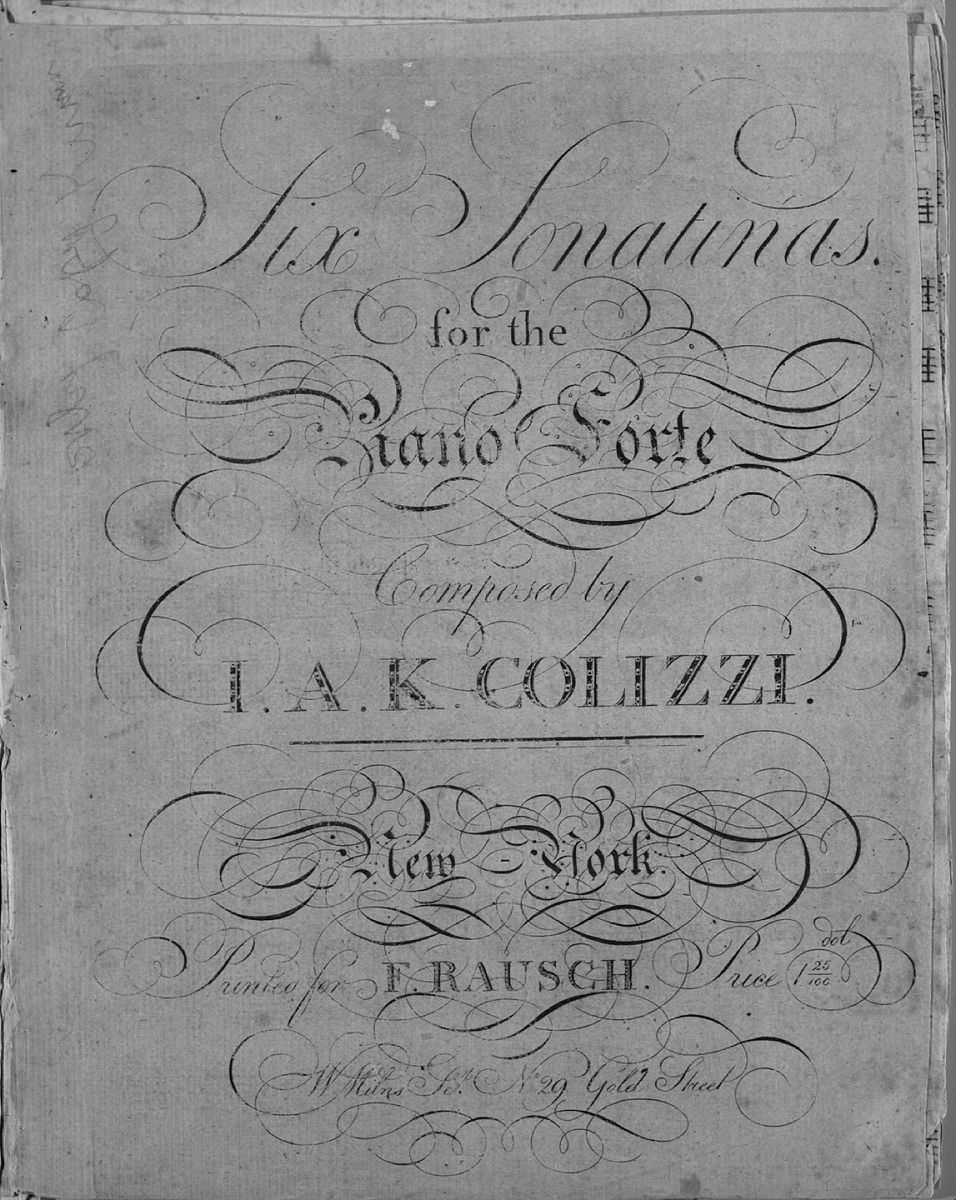 Six Sonatinas.
for the
Piano Forte
Composed by
I. A. K. COLIZZI.
New York.
Printed for F. RAUSCH. Price 1 25/100 dol
W Milns Sct. No 29 Gold Street